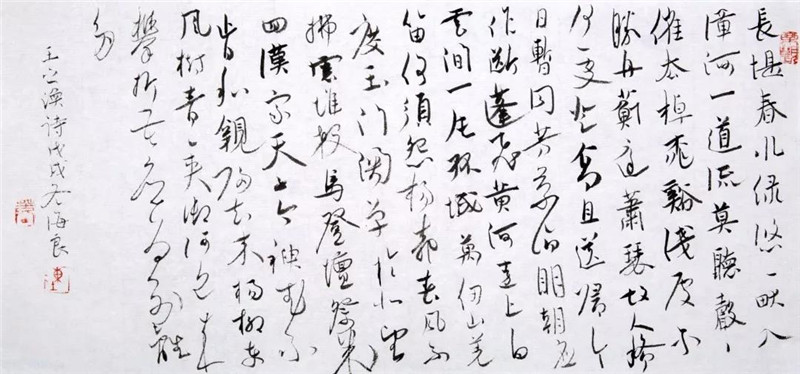 長堤春水绿悠〻畎入
漳河一道流莫聽聲〻
催去棹桃谿淺處不
勝舟薊庭蕭瑟故人稀
何處登高且送歸今
日暫同芳菊酒明朝應
作断蓬飛黄河遠上白
雲间一片孤城萬仞山羌
笛何須怨楊柳春風不
度玉门関单于北望
拂雲堆殺馬登壇祭幾
回漢家天子今神武不
肯和親歸去来楊柳東
風樹青〻夹御河近来
攀折苦應为别離
多
王之渙詩戊戌冬海良